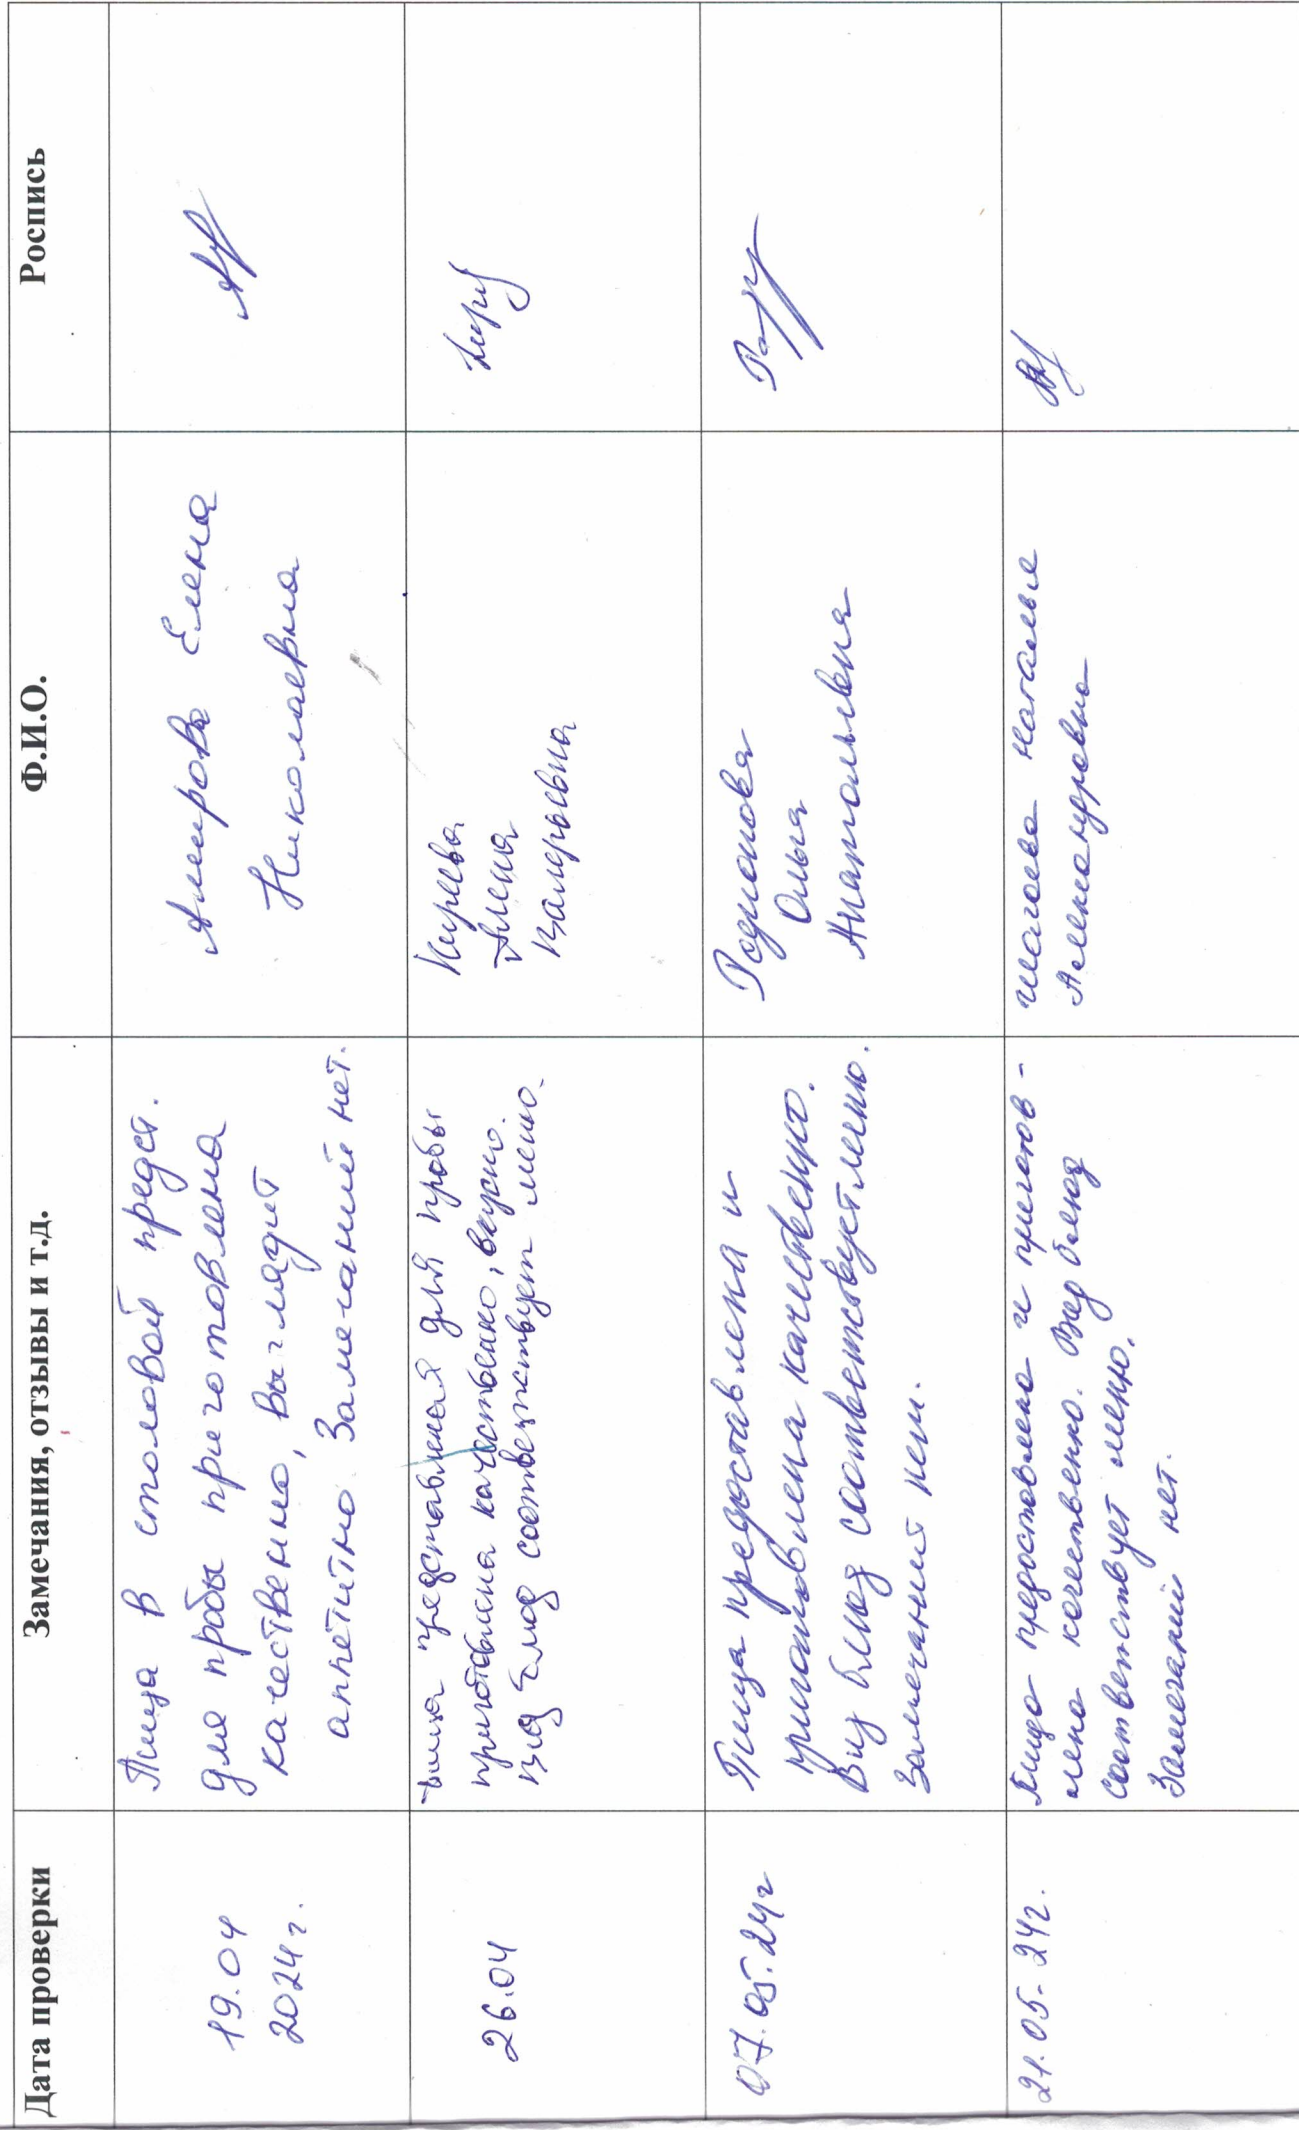 Дата проверки
Замечания, отзывы и т.д.
Ф.И.О.
Роспись
19.04
2024г.
Пища в столовой предст.
для пробы приготовлена
качественно, выглядит
аппетитно. Замечаний нет.
Амирова Елена
Николаевна
26.04
пища представленая для пробы
приготовлена качественно, вкусно.
вид блюд соответствует меню.
Киреева
Алена
Валерьевна
07.05.24г
Пища предоставлена и
приготовлена качественно.
Вид блюд соответствует меню.
Замечаний нет.
Родионова
Ольга
Анатольевна
21.05.24г.
Пища предоставлена и приготов-
лена качественно. Вид блюд
соответствует меню.
Замечаний нет.
Шагова Наталья
Александровна